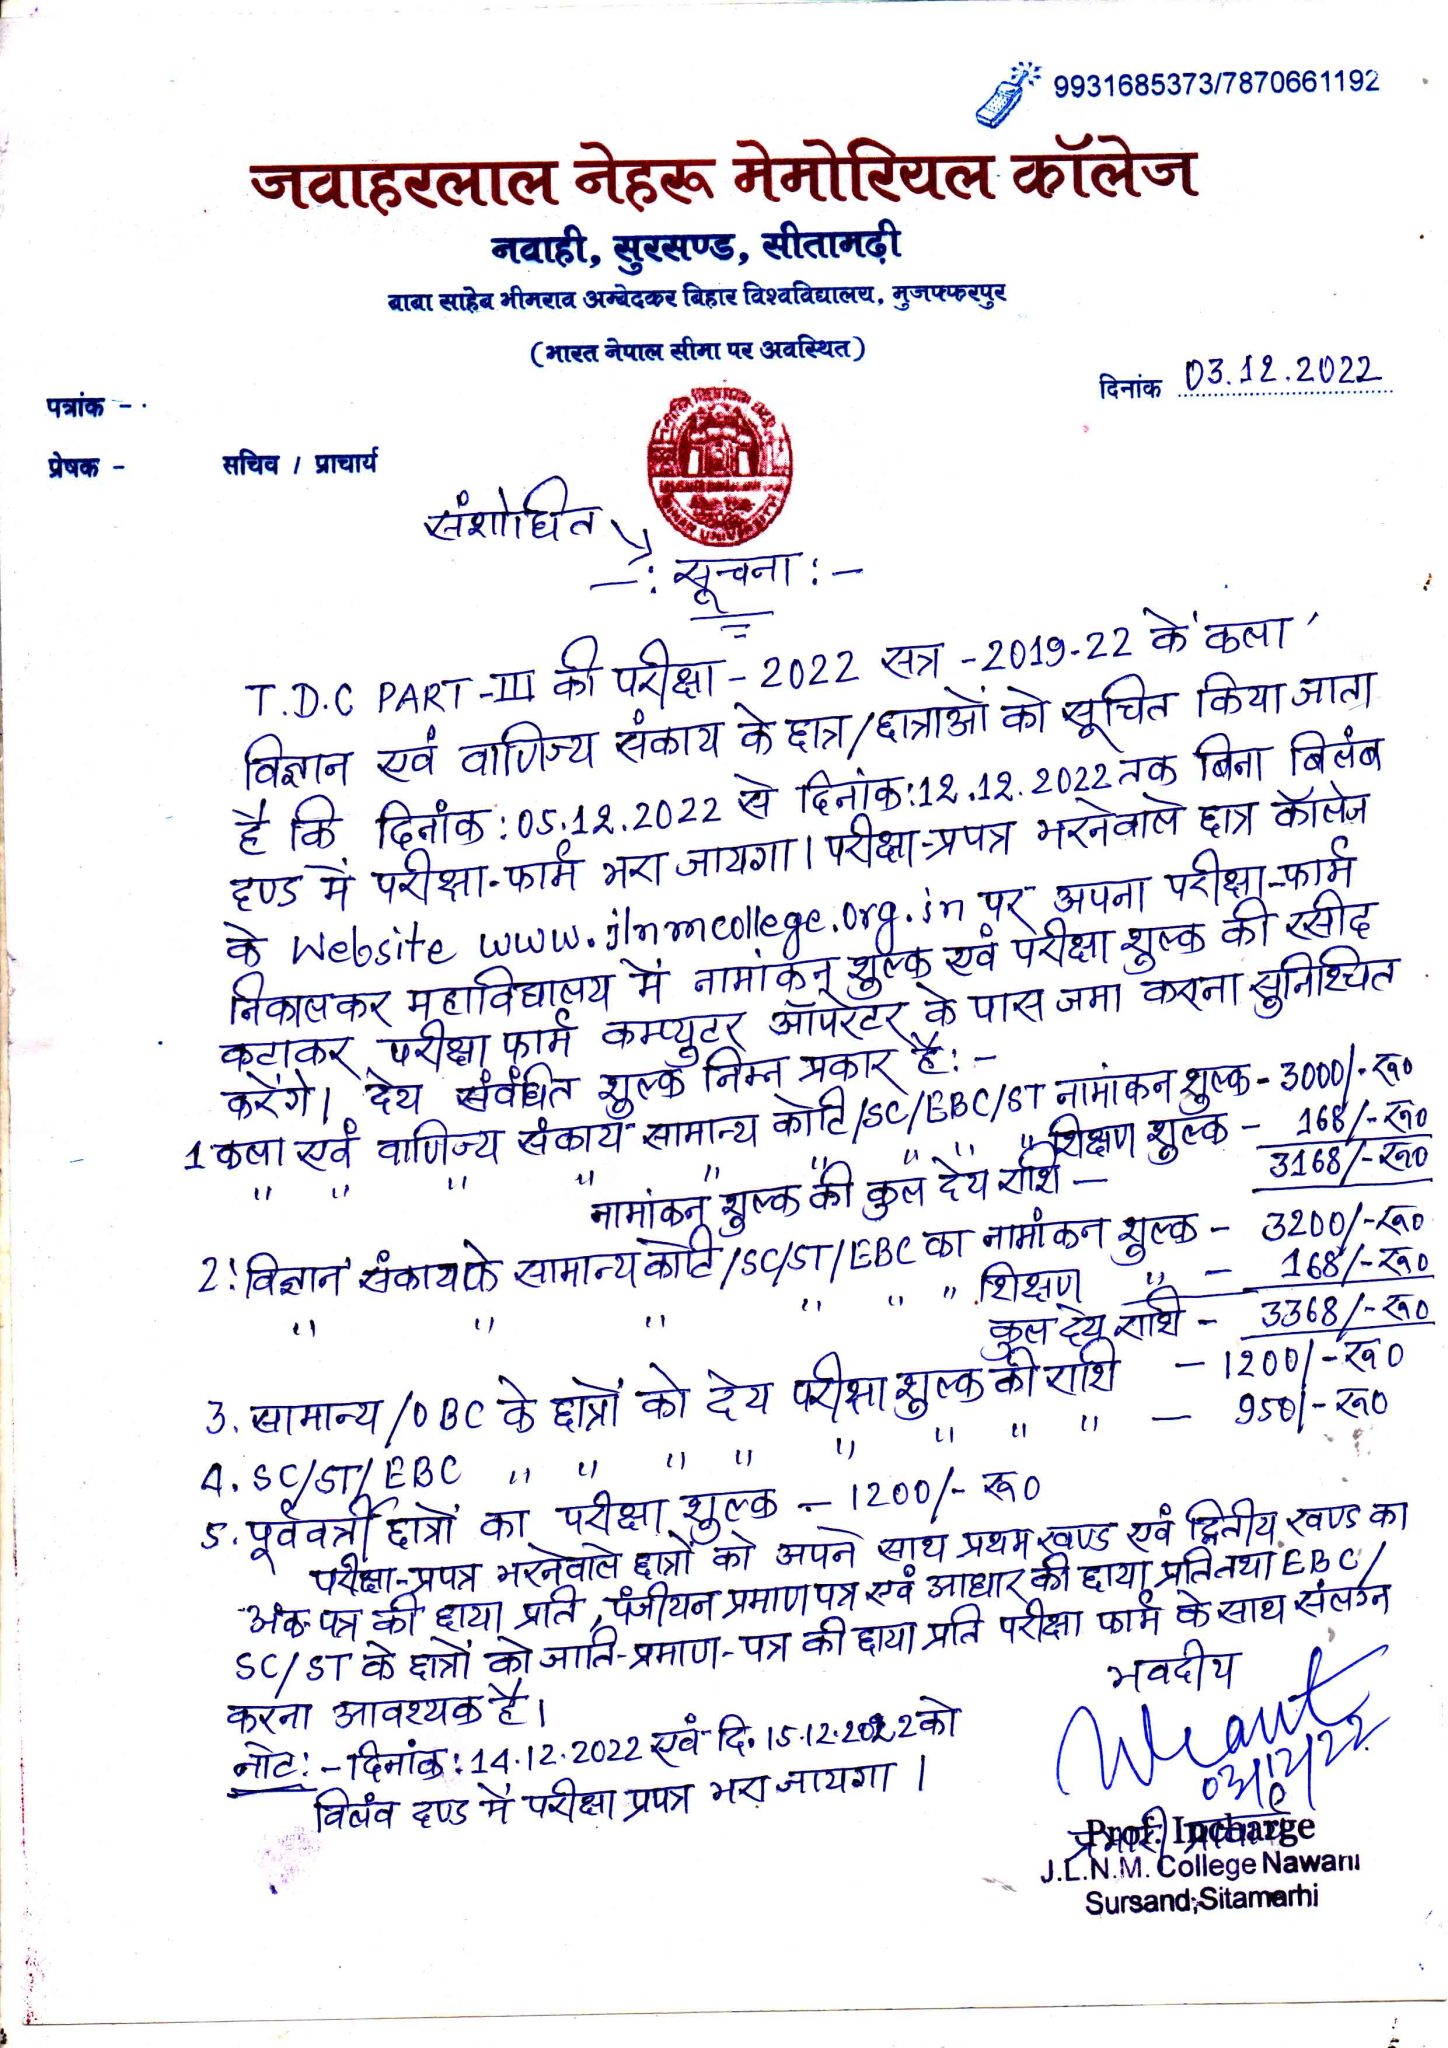 9931685373/7870661192
जवाहरलाल नेहरू मेमोरियल कॉलेज
नवाही, सुरसण्ड, सीतामढ़ी
बाबा साहेब भीमराव अम्बेदकर बिहार विश्वविद्यालय, मुजफ्फरपुर
(भारत नेपाल सीमा पर अवस्थित)
दिनांक 03.12.2022
पत्रांक -
प्रेषक - सचिव / प्राचार्य
संशोधित
-: सूचना :-
T.D.C PART-III की परीक्षा - 2022 सत्र - 2019-22 के 'कला'
विज्ञान एवं वाणिज्य संकाय के छात्र/छात्राओं को सूचित किया जाता
है कि दिनांक: 05.12.2022 से दिनांक: 12.12.2022 तक बिना बिलंब
दण्ड में परीक्षा-फार्म भरा जायगा। परीक्षा-प्रपत्र भरनेवाले छात्र कॅालेज
के Website www.jlnmcollege.org.in पर अपना परीक्षा-फार्म
निकालकर महाविद्यालय में नामांकन शुल्क एवं परीक्षा शुल्क की रसीद
कटाकर परीक्षा फार्म कम्प्युटर ऑपरेटर के पास जमा करना सुनिश्चित
करेंगे। देय संबंधित शुल्क निम्न प्रकार है:-
1 कला एवं वाणिज्य संकाय सामान्य कोटि/SC/EBC/ST नामांकन शुल्क - 3000/-रू0
" " " " " " " " " शिक्षण शुल्क - 168/-रू0
नामांकन शुल्क की कुल देय राशि - 3168/-रू0
2. 'विज्ञान' संकाय के सामान्य कोटि/SC/ST/EBC का नामांकन शुल्क - 3200/-रू0
" " " " " " शिक्षण " - 168/-रू0
कुल देय राशि - 3368/-रू0
3. सामान्य/OBC के छात्रों को देय परीक्षा शुल्क की राशि - 1200/-रू0
4. SC/ST/EBC " " " " " " " " - 950/-रू0
5. पूर्ववर्ती छात्रों का परीक्षा शुल्क - 1200/- रू0
परीक्षा-प्रपत्र भरनेवाले छात्रों को अपने साथ प्रथम खण्ड एवं द्वितीय खण्ड का
अंक-पत्र की छाया प्रति, पंजीयन प्रमाण पत्र एवं आधार की छाया प्रति तथा EBC/
SC/ST के छात्रों को जाति-प्रमाण-पत्र की छाया प्रति परीक्षा फार्म के साथ संलग्न
करना आवश्यक है।
नोट:- दिनांक: 14.12.2022 एवं दि. 15.12.2022 को
विलंव दण्ड में परीक्षा प्रपत्र भरा जायगा।
भवदीय
03/12/22
Prof. Incharge
J.L.N.M. College Nawahi
Sursand, Sitamarhi